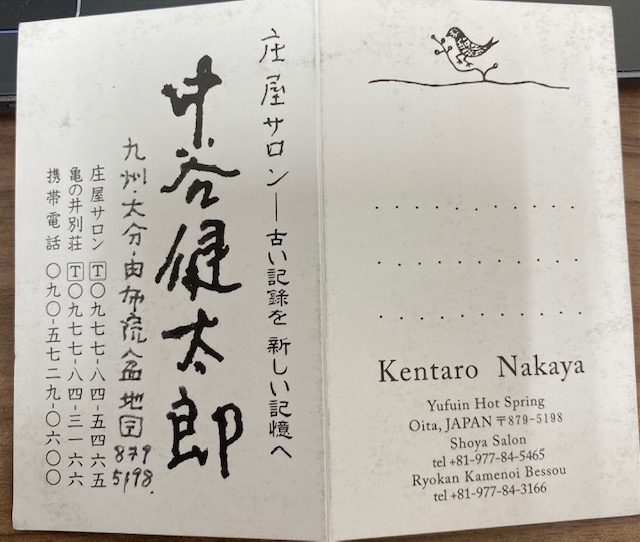 庄屋サロン―古い記録を 新しい記憶へ
中谷健太郎
九州・大分・由布院盆地〒8795198.
庄屋サロン T〇九七七-八四-五四六五
亀の井別荘 T〇九七七-八四-三一六六
携帯電話 〇九〇-五七二九-〇六〇〇
Kentaro Nakaya
Yufuin Hot Spring
Oita, JAPAN 〒879-5198
Shoya Salon
tel +81-977-84-5465
Ryokan Kamenoi Bessou
tel +81-977-84-3166